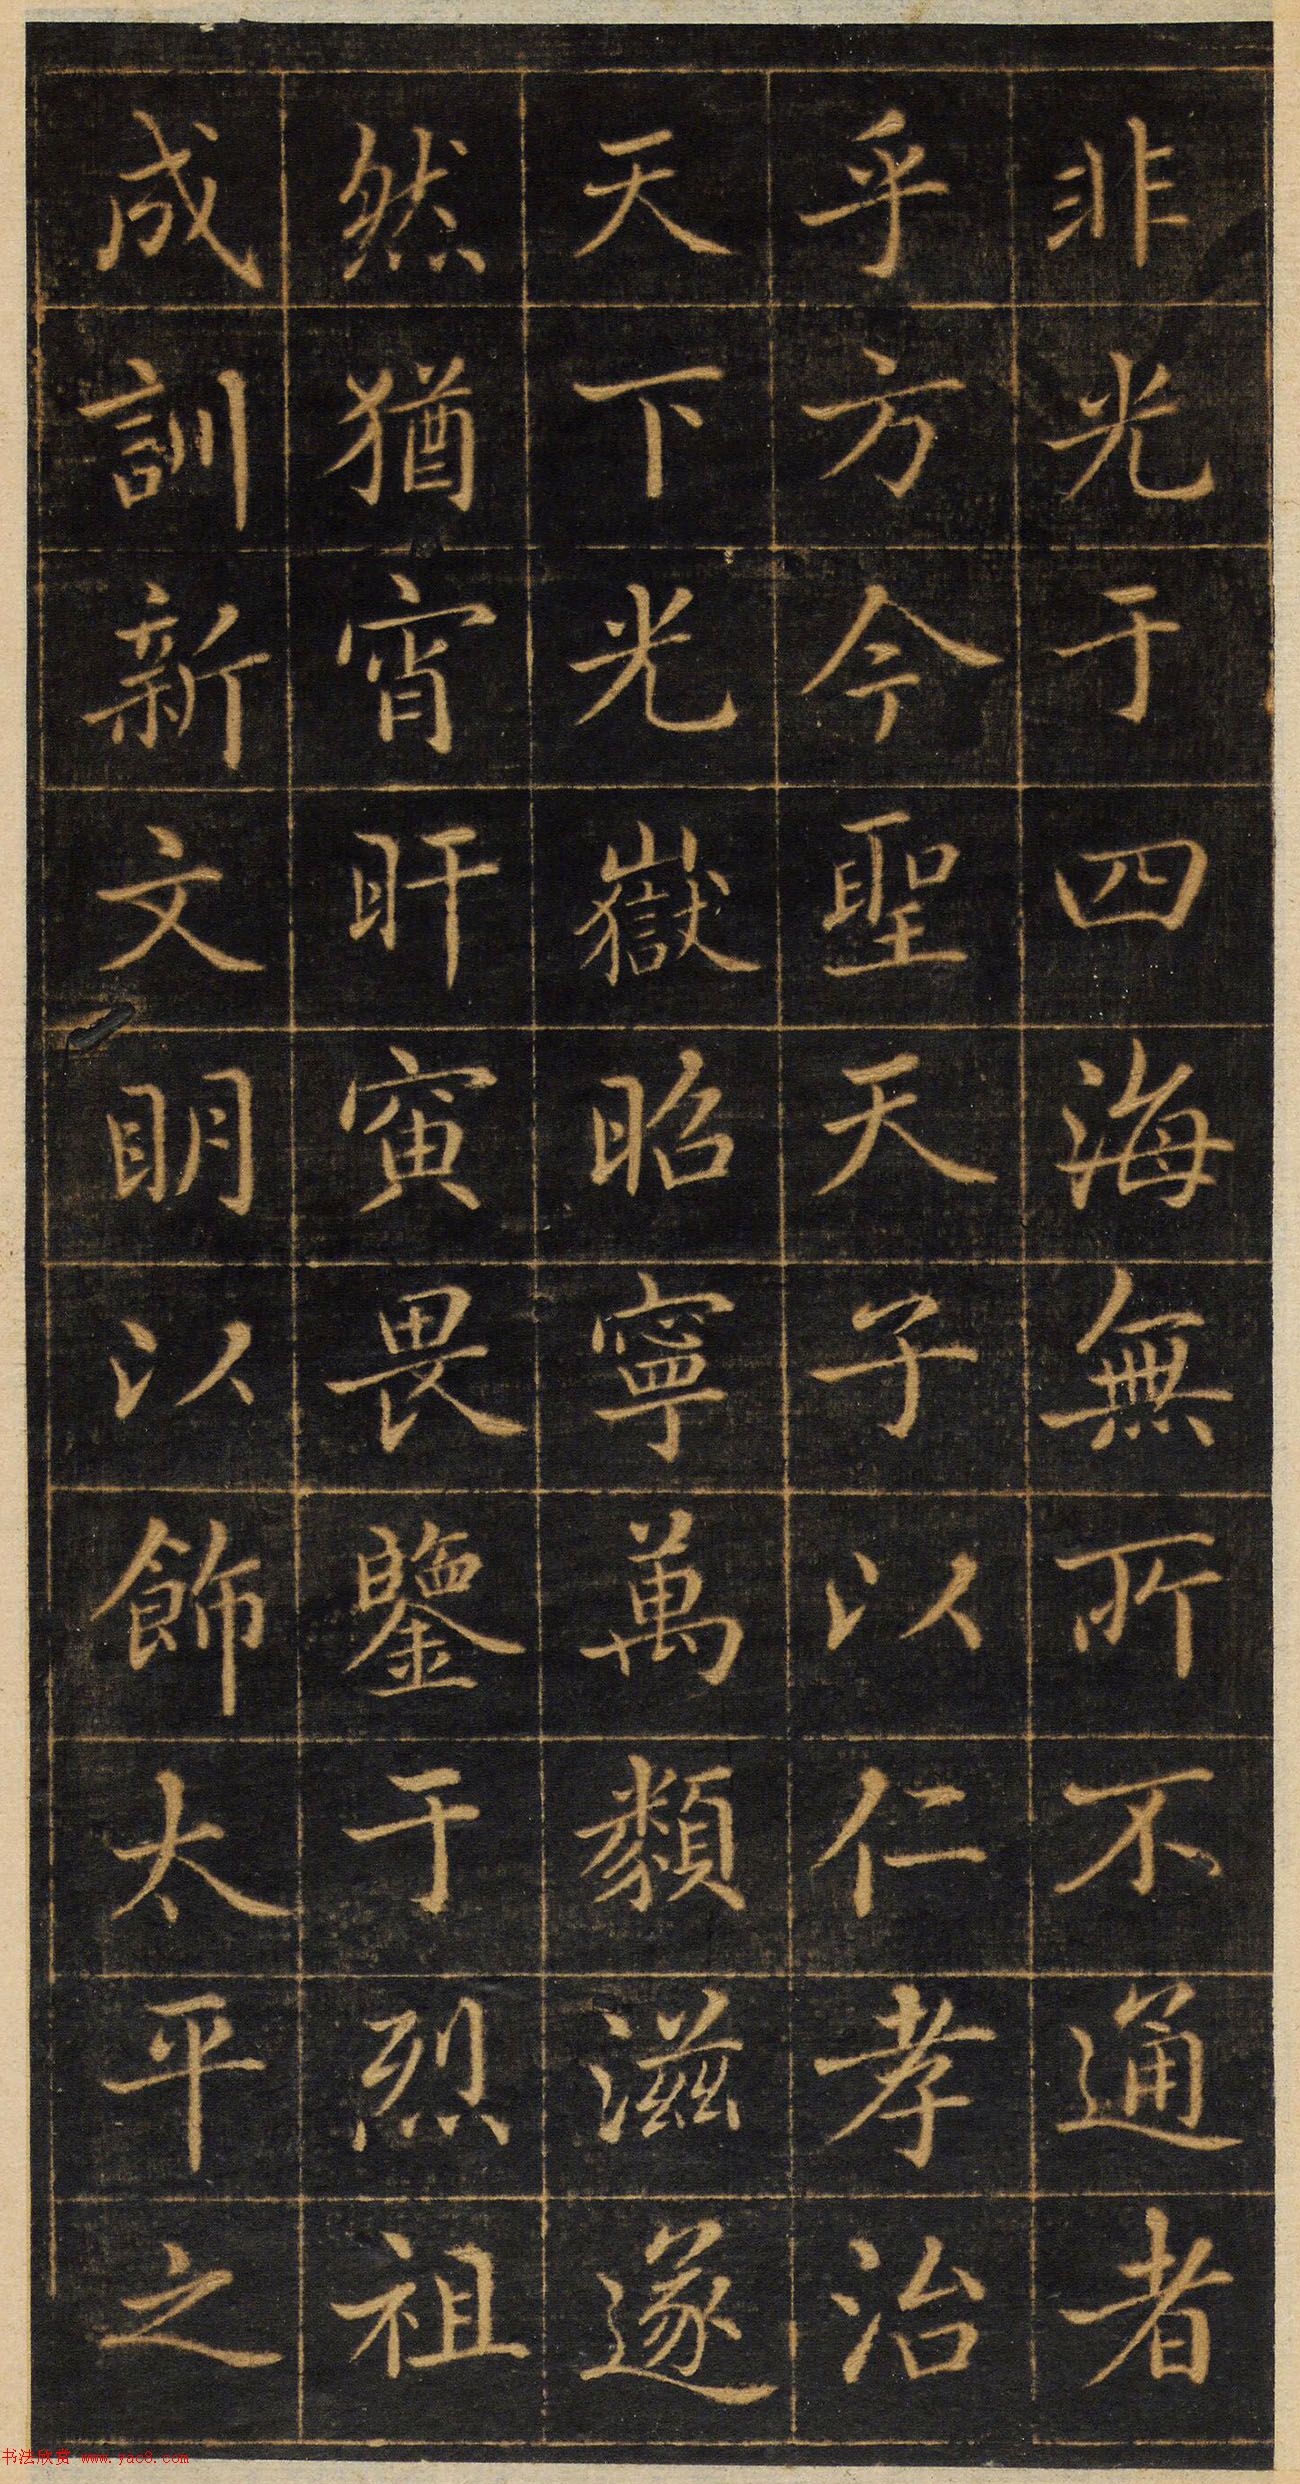 非光于四海無所不通者
乎方今聖天子以仁孝治
天下光嶽昭寧萬類滋遂
然猶宵旰寅畏鑒于烈祖
成訓新文明以飾太平之
书法欣赏 www.yac8.com